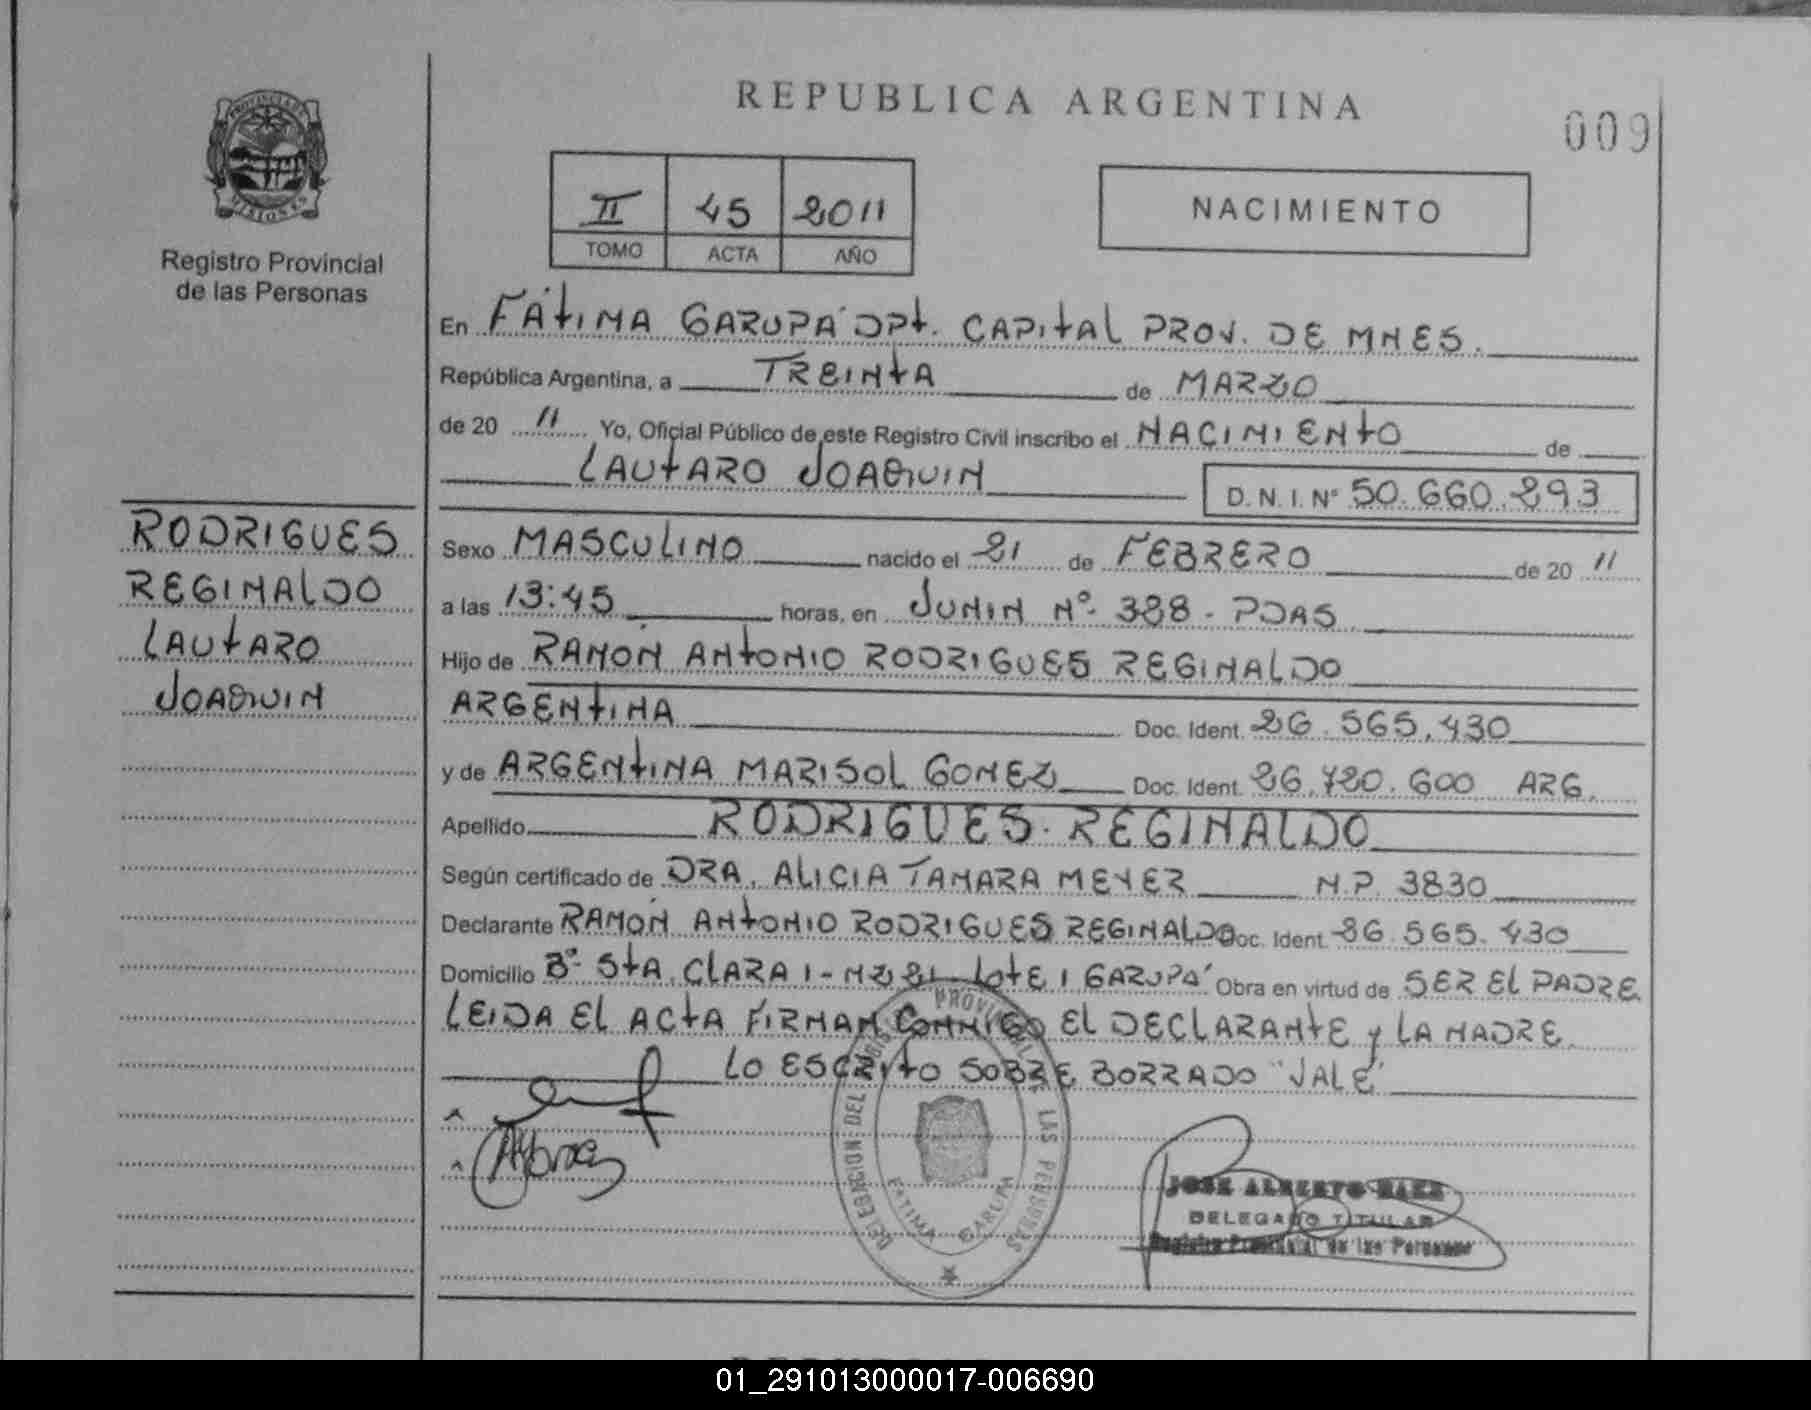 REPUBLICA ARGENTINA
009
PROVINCIA DE
MISIONES
Registro Provincial
de las Personas
II 45 2011
TOMO ACTA AÑO
NACIMIENTO
En FÁTIMA GARUPÁ DPT. CAPITAL PROV. DE MNES.
República Argentina, a TREINTA de MARZO
de 20 11 Yo, Oficial Público de este Registro Civil inscribo el NACIMIENTO de
LAUTARO JOAQUIN D.N.I. Nº 50.660.293
RODRIGUES
REGINALDO
LAUTARO
JOAQUIN
Sexo MASCULINO nacido el 21 de FEBRERO de 20 11
a las 13:45 horas, en JUNIN Nº 388 - PDAS
Hijo de RAMÓN ANTONIO RODRIGUES REGINALDO
ARGENTINA Doc. Ident. 26.565.430
y de ARGENTINA MARISOL GOMEZ Doc. Ident. 26.720.600 ARG.
Apellido RODRIGUES. REGINALDO
Según certificado de DRA. ALICIA TAMARA MEYER M.P. 3830
Declarante RAMÓN ANTONIO RODRIGUES REGINALDO Doc. Ident. 26.565.430
Domicilio Bº STA. CLARA I - MZ 21 LOTE 1 GARUPÁ Obra en virtud de SER EL PADRE.
LEIDA EL ACTA FIRMAN CONMIGO EL DECLARANTE y LA MADRE.
LO ESCRITO SOBRE BORRADO "VALE"
DELEGACION DEL REGISTRO PROVINCIAL DE LAS PERSONAS
FATIMA GARUPA
JOSE ALBERTO BAEZ
DELEGADO TITULAR
Registro Provincial de las Personas
01_291013000017-006690